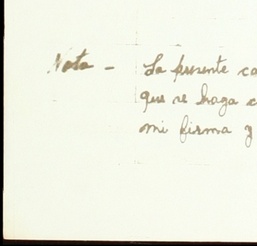 Nota - La presente ca
que se haga c
mi firma y